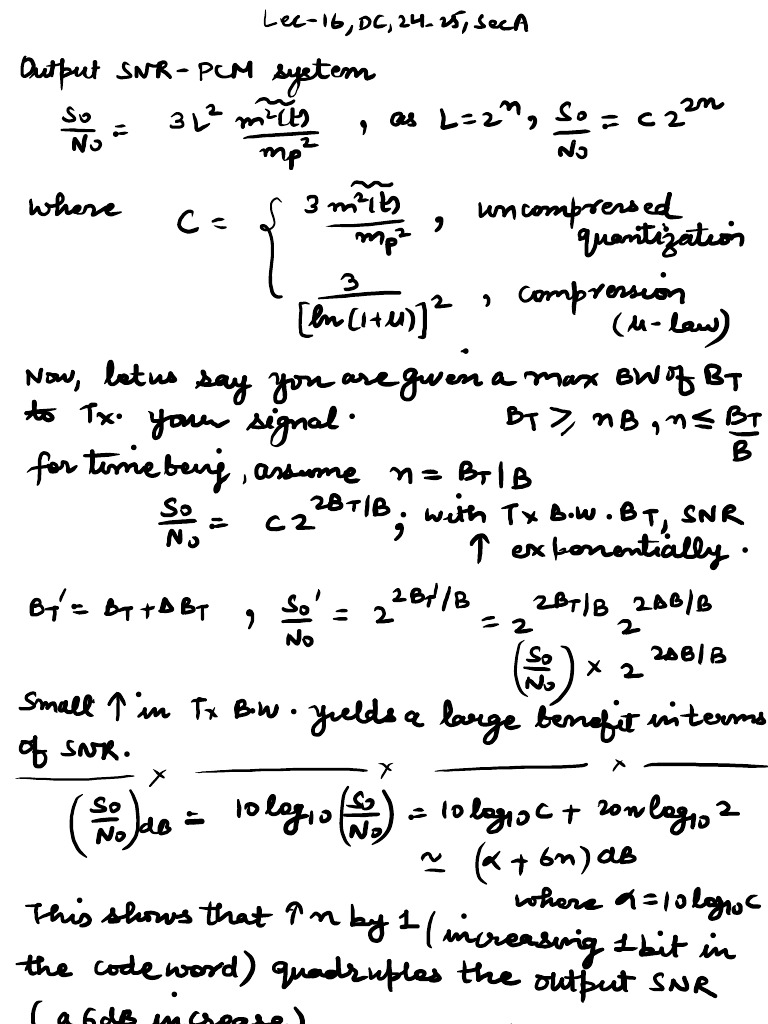 Lec-16, DC, 24-25, Sec A
Output SNR - PCM system
So/No = 3L² m²(t)~/mp² , as L=2ⁿ, So/No = c 2²ⁿ
where C = { 3 m²(t)~/mp² , uncompressed quantization
3/[ln(1+μ)]² , compression (μ-law)
Now, let us say you are given a max BW of BT
to Tx. your signal. BT ≥ nB, n ≤ BT/B
for time being, assume n = BT/B
So/No = c 2^(2BT/B); with Tx B.W. BT, SNR
↑ exponentially.
BT' = BT + ΔBT , So'/No = 2^(2BT'/B) = 2^(2BT/B) 2^(2ΔB/B)
(So/No) × 2^(2ΔB/B)
Small ↑ in Tx B.W. yields a large benefit in terms
of SNR.
x x x
(So/No)dB = 10 log10 (So/No) = 10 log10 C + 20n log10 2
≃ (α + 6n) dB
where α = 10 log10 C
This shows that ↑ n by 1 (increasing 1 bit in
the code word) quadruples the output SNR
(a 6dB increase)